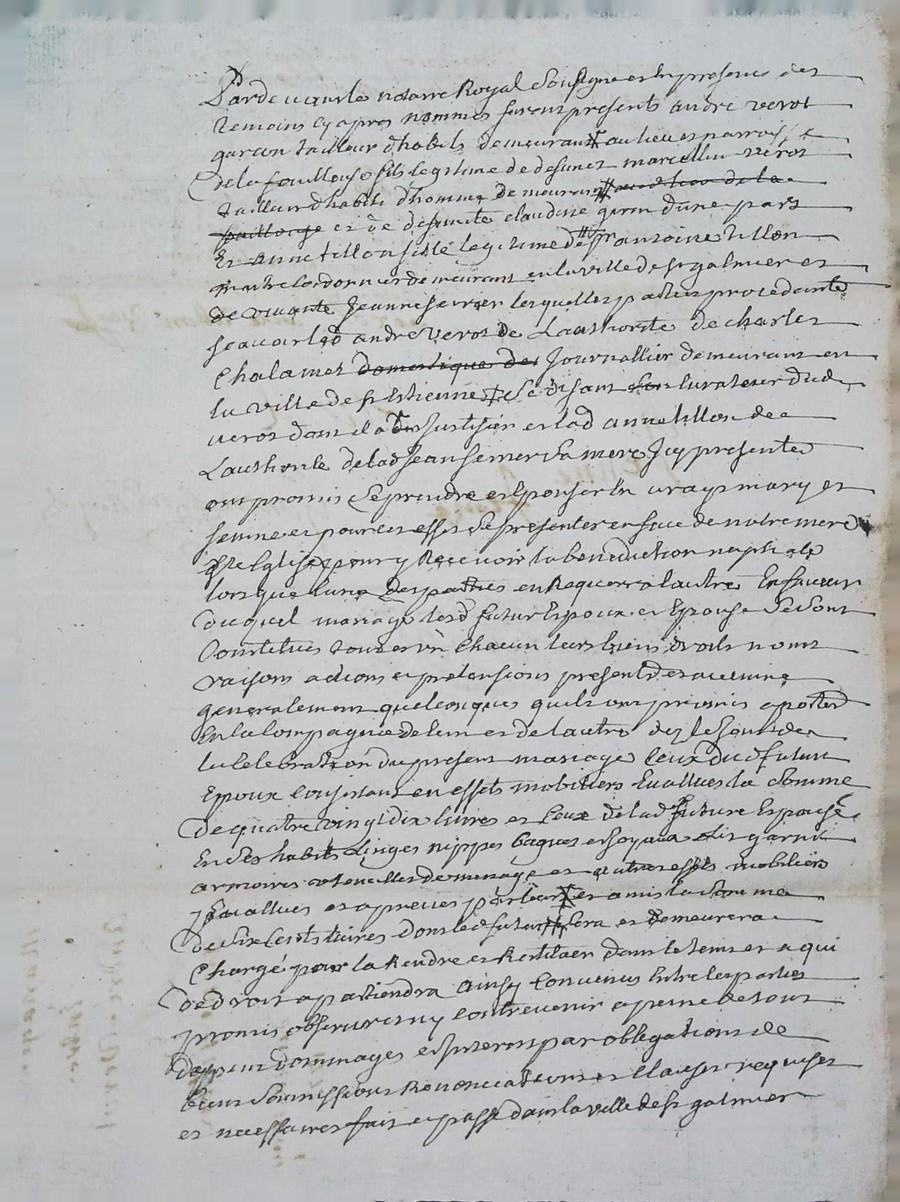 Pardevant le notaire Royal Soussigne et En presence des
temoins cy apres nommes furent presents andré verot
garçon tailleur d'habits demeurant au lieu et parroisse
de la fouillouse fils legitime de defunct marcellin verot
tailleur d'habits d'homme demeurant au lieu de la
fouillouse et de defuncte claudine giron d'une part
Et anne tillon fille legitime de antoine tillon
maitre Cordonnier demeurant en la ville de st galmier et
de vivante Jeanne serrier lesquelles parties procedantes
scavoir led andre verot de Lauthorité de charles
Chalamet domestique de Journallier demeurant en
la ville de st Estienne Se disant Son Curateur dud
verot dont il a dit Justifier et lad anne tillon de
Lauthorite de lad Jeanne serrier Sa mere Icy presente
ont promis Se prendre et Epouser En vrays mary et
femme et pour cet effet Se presenter en face de notre mere
Ste Eglise pour y Recevoir la benediction nuptiale
lorsque l'une des parties en Requerra l'autre En faveur
Duquel mariage lesd futur Epoux et Epouse Se sont
Constitués tous et un Chacun leurs biens droits noms
raisons actions et pretensions presents et avenir
generalement quelconques quils ont promis aporter
En la Compagnie de l'un et de l'autre dez le Jour de
la Celebration du present mariage Ceux dud futur
Epoux Consistant en effets mobiliers Evallues la Somme
De quatre vingt dix livres et Ceux de lad future Epouse
En Ses habits Linges nippes bagues et Joyaux Lit garni
armoires utencilles de menage et autres effets mobiliers
Evallues et aprecies par leurs et amis la Somme
de Six Cents livres dont led futur Sera et demeurera
Chargé pour la Rendre et Restituer dans le tems et a qui
De droit apartiendra ainsy Convenus Entre les parties
promis observer et ny Contrevenir a peine de tous
depens dommages et Interets par obligations de
biens Soumissions Renonciations et Clauses requises
et necessaires fait et passé dans la ville de St galmier